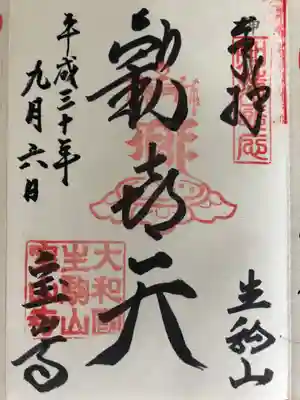 奉拝
生駒山
歓喜天
平成三十年
九月六日
宝山寺
大和國
生駒山
寶山寺